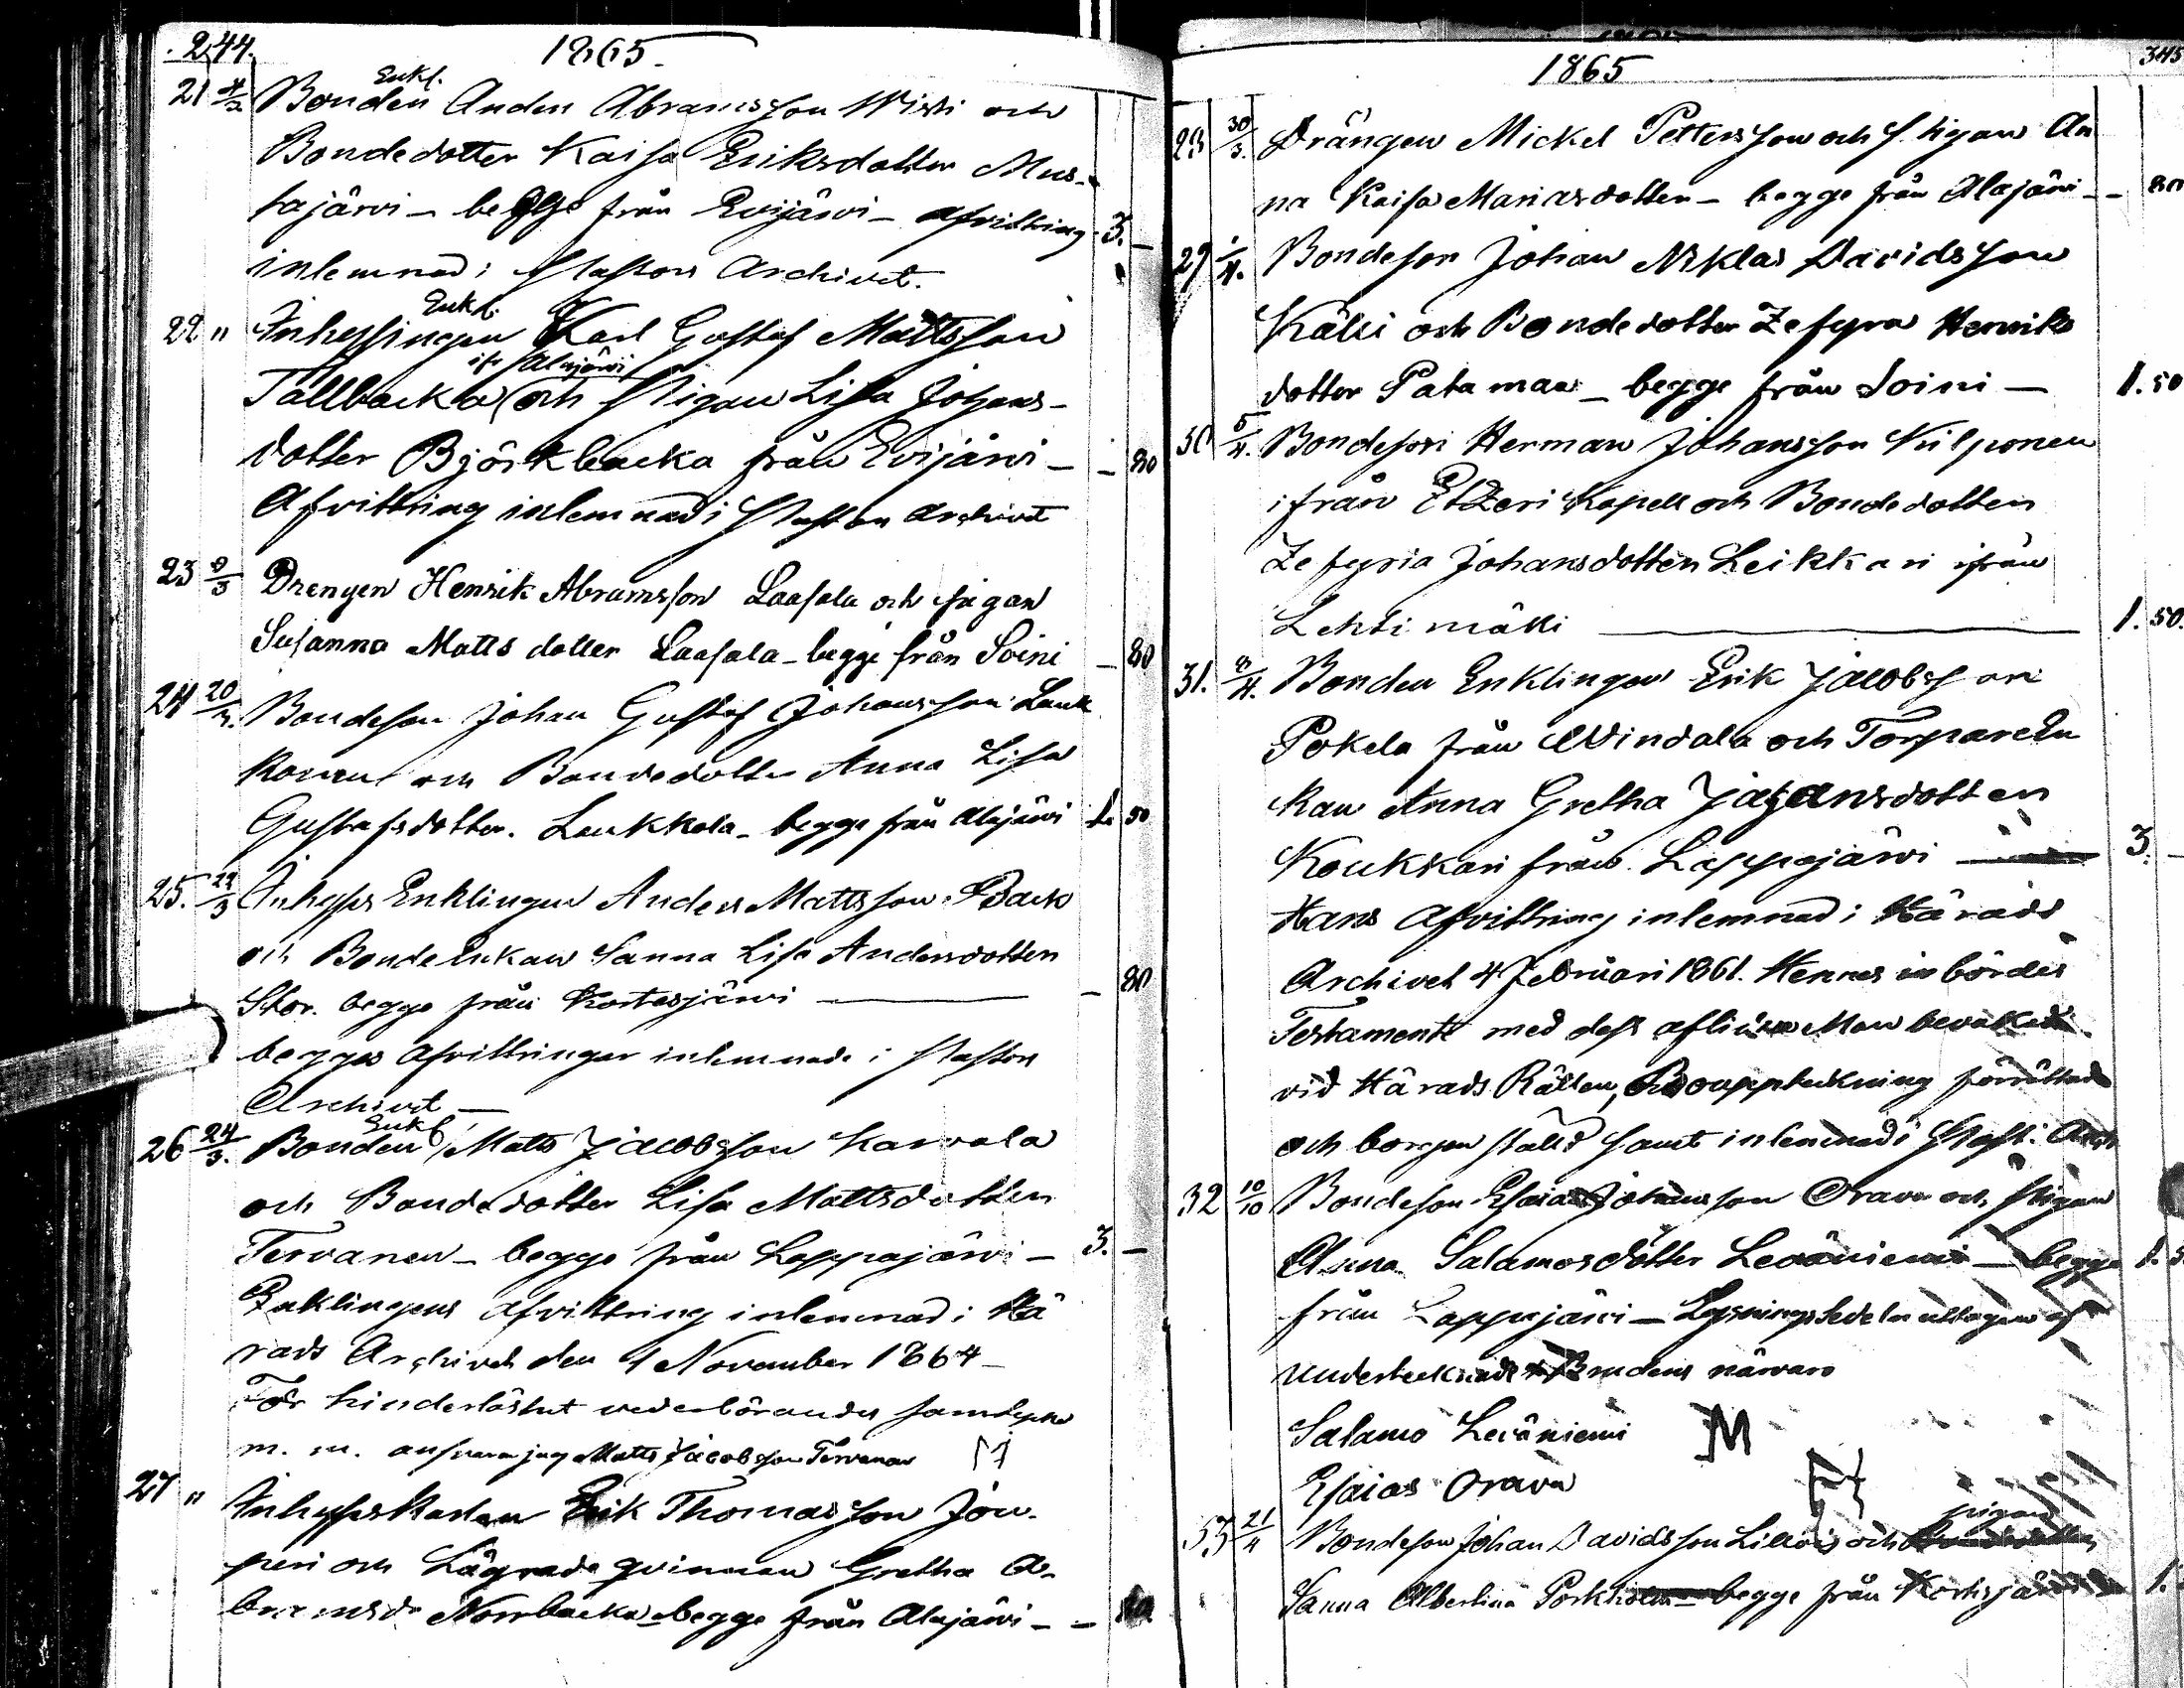 244.
1865
21 4/3 Bonden Enkl. Anders Abramsson Wisti och
Bondedotter Kaisa Eriksdotter Mus-
tajärvi - begge från Evijärvi - afvittring 3. -
inlemnad i Pastors Archivet.
22 " Inhysingen Enkl. Karl Gustaf Mattsson
Tallbacka ifr Alajärvi och Pigan Lisa Johans-
dotter Björkbacka från Evijärvi - - 80
Afvittring inlemnad i Pastors archivet
23 9/3 Drengen Henrik Abramsson Laasala och pigan
Susanna Matts dotter Laasala - begge från Soini - 80
24 20/3. Bondeson Johan Gustaf Johansson Lauk
konen och Bondedotter Anna Lisa
Gustafsdotter. Laukkola - begge från Alajärvi 1. 50
25. 22/3 Inhyses Enklingen Anders Mattsson Back
och Bonde Enkan Sanna Lisa Andersdotter
Stor. begge från Kortesjärvi - 80
begges afvittringar inlemnade i Pastors
Archivet -
26 24/3. Bonden Enkl. Matts Jacobsson Karvala
och Bondedotter Lisa Mattsdotter
Tervanen - begge från Lappajärvi - 3. -
Enklingens afvittring inlemnad i Hä
rads Archivet den 4 November 1864 -
För hinderlöshet vederbörandes samtycke
m. m. ansvarar jag Matts Jacobsson Tervanen
27 " Inhyseskarlen Erik Thomasson Jou-
peri och Lägrade qvinnan Gretha A-
bramsdr Norrbacka - begge från Alajärvi - - 80
1865
345
28 30/3. Drängen Mickel Pettersson och Pigan An
na Kaisa Mariasdotter - begge från Alajärvi - - 80
29 1/4. Bondeson Johan Niklas Davidsson
Kälvi och Bondedotter Zefyra Henriks
dotter Patamaa - begge från Soini - 1. 50
30 5/4. Bondeson Herman Johansson Kilponen
ifrån Etzeri Kapell och Bondedotter
Zefyria Johansdotter Leikkari ifrån
Lehtimäki 1. 50.
31. 8/4. Bonden Enklingen Erik Jacobsson
Pokela från Windala och Torpare En
kan Anna Gretha Johansdotter
Koukkari från Lappajärvi 3. -
Hans afvittring inlemnad i Härads
Archivet 4 Februari 1861. Hennes inbördes
Testamente med dess aflidne Man bevakadt
vid Härads Rätten, Bouppteckning förrättad
och borgen ställd samt inlemnad i Past. Arch
32 10/10 Bondeson Esaias Johansson Orava och Pigan
Anna Salamosdotter Leväniemi - begge 1. 5
från Lappajärvi - Lysningssedeln uttagen af
undertecknade i Brudens närvaro
Salamo Leväniemi
Esaias Orava
33 21/4 Bondeson Johan Davidsson och pigan
Sanna Albertina begge från Kortesjärvi 1.